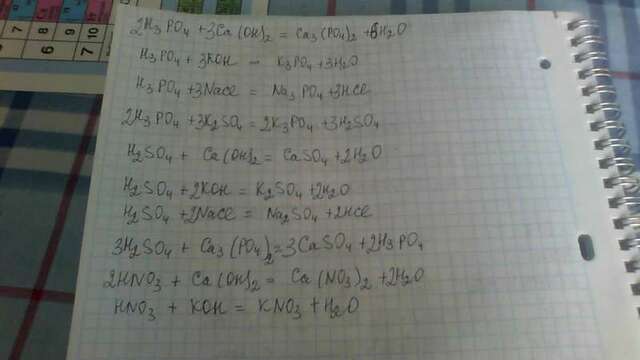 2H₃PO₄ + 3Ca(OH)₂ = Ca₃(PO₄)₂ + 6H₂O
H₃PO₄ + 3KOH = K₃PO₄ + 3H₂O
H₃PO₄ + 3NaCl = Na₃PO₄ + 3HCl
2H₃PO₄ + 3K₂SO₄ = 2K₃PO₄ + 3H₂SO₄
H₂SO₄ + Ca(OH)₂ = CaSO₄ + 2H₂O
H₂SO₄ + 2KOH = K₂SO₄ + 2H₂O
H₂SO₄ + 2NaCl = Na₂SO₄ + 2HCl
3H₂SO₄ + Ca₃(PO₄)₂ = 3CaSO₄ + 2H₃PO₄
2HNO₃ + Ca(OH)₂ = Ca(NO₃)₂ + 2H₂O
HNO₃ + KOH = KNO₃ + H₂O